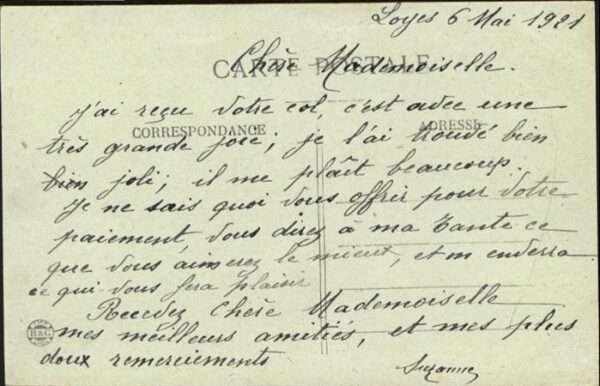 Loyes 6 Mai 1921
CARTE POSTALE
Chère Mademoiselle.
J'ai reçu votre col, c'est avec une
CORRESPONDANCE
ADRESSE
très grande joie; je l'ai trouvé bien
bien joli; il me plaît beaucoup.
Je ne sais quoi vous offrir pour votre
paiement, vous direz à ma Tante ce
que vous aimerez le mieux, et m enderra
ce qui vous fera plaisir
Recedez Chère Mademoiselle
mes meilleurs amitiés, et mes plus
doux remerciements
Suzanne
B&G